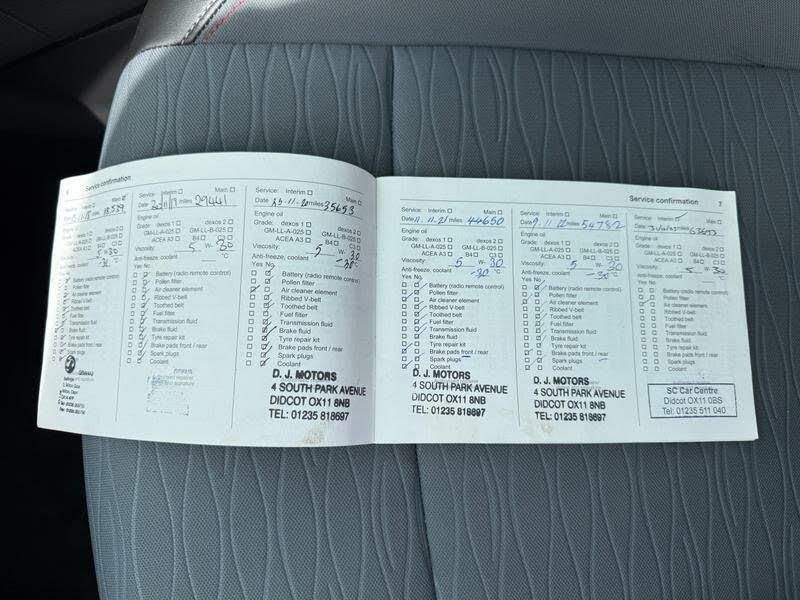 Service confirmation
Main
18,559
Engine oil
dexos 2
GM-LL-B-025
5 W- 30
Anti-freeze, coolant
Yes No
Battery (radio remote control)
Pollen filter
Air cleaner element
Ribbed V-belt
Toothed belt
Fuel filter
Transmission fluid
Brake fluid
Tyre repair kit
Brake pads front / rear
Spark plugs
Coolant
Service: Interim Main
Date miles 29441
Engine oil
Grade: dexos 1 dexos 2
GM-LL-A-025 GM-LL-B-025
ACEA A3 B4 C3
Viscosity: 5 W- 30
Anti-freeze, coolant °C
Yes No
Battery (radio remote control)
Pollen filter
Air cleaner element
Ribbed V-belt
Toothed belt
Fuel filter
Transmission fluid
Brake fluid
Tyre repair kit
Brake pads front / rear
Spark plugs
Coolant
Service: Interim Main
Date 23-11-20 miles 35653
Engine oil
Grade: dexos 1 dexos 2
GM-LL-A-025 GM-LL-B-025
ACEA A3 B4 C3
Viscosity: 5 W- 30
Anti-freeze, coolant -38 °C
Yes No
Battery (radio remote control)
Pollen filter
Air cleaner element
Ribbed V-belt
Toothed belt
Fuel filter
Transmission fluid
Brake fluid
Tyre repair kit
Brake pads front / rear
Spark plugs
Coolant
D. J. MOTORS
4 SOUTH PARK AVENUE
DIDCOT OX11 8NB
TEL: 01235 818697
Service confirmation 7
Service: Interim Main
Date 11.11.21 miles 44650
Engine oil
Grade: dexos 1 dexos 2
GM-LL-A-025 GM-LL-B-025
ACEA A3 B4 C3
Viscosity: 5 W- 30
Anti-freeze, coolant -30 °C
Yes No
Battery (radio remote control)
Pollen filter
Air cleaner element
Ribbed V-belt
Toothed belt
Fuel filter
Transmission fluid
Brake fluid
Tyre repair kit
Brake pads front / rear
Spark plugs
Coolant
D. J. MOTORS
4 SOUTH PARK AVENUE
DIDCOT OX11 8NB
TEL: 01235 818697
Service: Interim Main
Date 9.11.22 miles 54782
Engine oil
Grade: dexos 1 dexos 2
GM-LL-A-025 GM-LL-B-025
ACEA A3 B4 C3
Viscosity: 5 W- 30
Anti-freeze, coolant -35 °C
Yes No
Battery (radio remote control)
Pollen filter
Air cleaner element
Ribbed V-belt
Toothed belt
Fuel filter
Transmission fluid
Brake fluid
Tyre repair kit
Brake pads front / rear
Spark plugs
Coolant
D. J. MOTORS
4 SOUTH PARK AVENUE
DIDCOT OX11 8NB
TEL: 01235 818697
Service: Interim Main
Date miles
Engine oil
Grade: dexos 1 dexos 2
GM-LL-A-025 GM-LL-B-025
ACEA A3 B4 C3
Viscosity: 5 W- 30
Anti-freeze, coolant °C
Yes No
Battery (radio remote control)
Pollen filter
Air cleaner element
Ribbed V-belt
Toothed belt
Fuel filter
Transmission fluid
Brake fluid
Tyre repair kit
Brake pads front / rear
Spark plugs
Coolant
SC Car Centre
Didcot OX11 0BS
Tel: 01235 511 040